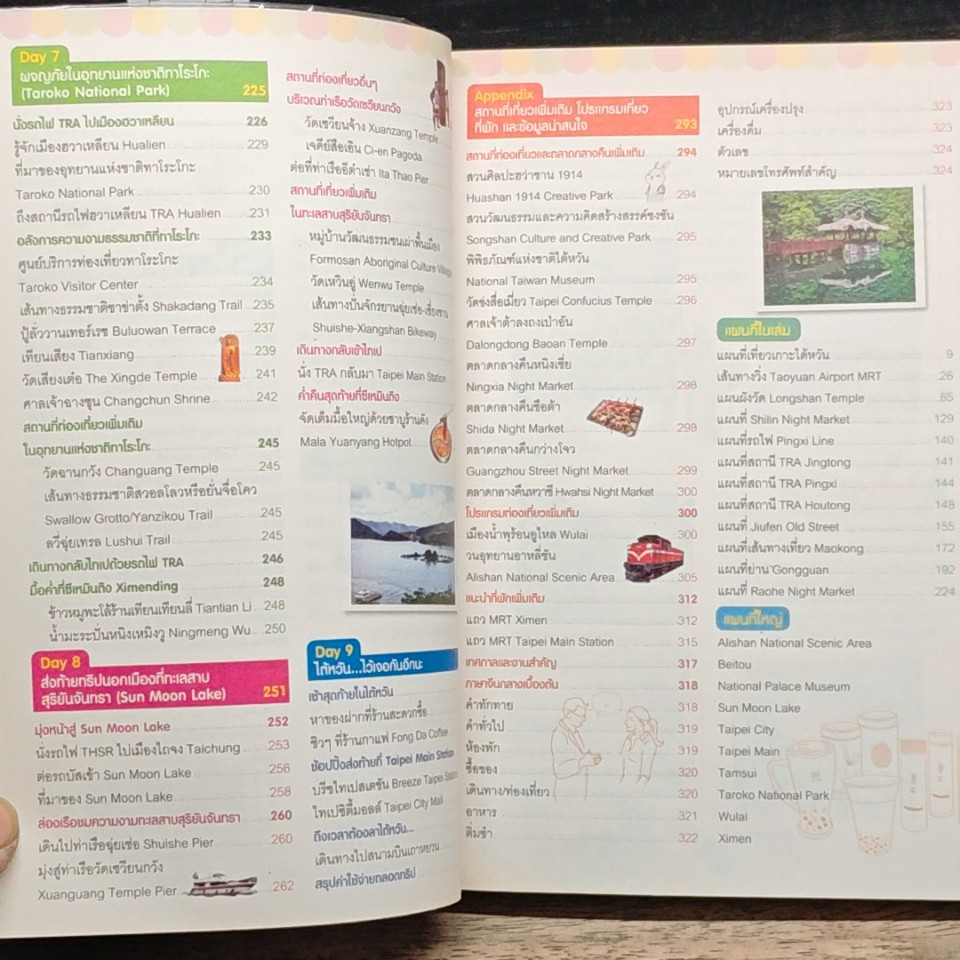 Day 7
ผจญภัยในอุทยานแห่งชาติทาโระโกะ
(Taroko National Park) 225
นั่งรถไฟ TRA ไปเมืองฮวาเหลียน 226
รู้จักเมืองฮวาเหลียน Hualien 229
ที่มาของอุทยานแห่งชาติทาโระโกะ
Taroko National Park 230
ถึงสถานีรถไฟฮวาเหลียน TRA Hualien 231
อลังการความงามธรรมชาติที่ทาโระโกะ 233
ศูนย์บริการท่องเที่ยวทาโระโกะ
Taroko Visitor Center 234
เส้นทางธรรมชาติซาข่าตั้ง Shakadang Trail 235
ปู้ลั่ววานเทอร์เรซ Buluowan Terrace 237
เทียนเสียง Tianxiang 239
วัดเสียงเต๋อ The Xingde Temple 241
ศาลเจ้าฉางชุน Changchun Shrine 242
สถานที่ท่องเที่ยวเพิ่มเติม
ในอุทยานแห่งชาติทาโระโกะ 245
วัดฉานกวัง Changuang Temple 245
เส้นทางธรรมชาติสวอลโลวหรือยั่นจื่อโคว
Swallow Grotto/Yanzikou Trail 245
ลวี่ฉุ่ยเทรล Lushui Trail 245
เดินทางกลับไทเปด้วยรถไฟ TRA 246
มื้อค่ำที่ซีเหมินติง Ximending 248
ข้าวหมูพะโล้ร้านเทียนเทียนลี่ Tiantian Li 248
น้ำมะระปั่นหนิงเหมิงวู Ningmeng Wu 250
Day 8
ส่งท้ายทริปนอกเมืองที่ทะเลสาบ
สุริยันจันทรา (Sun Moon Lake) 251
มุ่งหน้าสู่ Sun Moon Lake 252
นั่งรถไฟ THSR ไปเมืองไถจง Taichung 253
ต่อรถบัสเข้า Sun Moon Lake 256
ที่มาของ Sun Moon Lake 258
ล่องเรือชมความงามทะเลสาบสุริยันจันทรา 260
เดินไปท่าเรือฉุ่ยเช่อ Shuishe Pier 260
มุ่งสู่ท่าเรือวัดเซวียนกวัง
Xuanguang Temple Pier 262
สถานที่ท่องเที่ยวอื่นๆ
บริเวณท่าเรือวัดเซวียนกวัง
วัดเซวียนจ้าง Xuanzang Temple
เจดีย์สือเอิน Ci-en Pagoda
ต่อที่ท่าเรืออีต๋าเช่า Ita Thao Pier
สถานที่เที่ยวเพิ่มเติม
ในทะเลสาบสุริยันจันทรา
หมู่บ้านวัฒนธรรมชนเผ่าพื้นเมือง
Formosan Aboriginal Culture Village
วัดเหวินอู่ Wenwu Temple
เส้นทางปั่นจักรยานฉุ่ยเช่อ-เซี่ยงซาน
Shuishe-Xiangshan Bikeway
เดินทางกลับเข้าไทเป
นั่ง TRA กลับมา Taipei Main Station
ค่ำคืนสุดท้ายที่ซีเหมินติง
จัดเต็มมื้อใหญ่ด้วยชาบูร้านดัง
Mala Yuanyang Hotpot
Day 9
ไต้หวัน...ไว้เจอกันอีกนะ
เช้าสุดท้ายในไต้หวัน
หาของฝากที่ร้านสะดวกซื้อ
ชิวๆ ที่ร้านกาแฟ Fong Da Coffee
ช้อปปิ้งส่งท้ายที่ Taipei Main Station
บรีซไทเปสเตชัน Breeze Taipei Station
ไทเปซิตี้มอลล์ Taipei City Mall
ถึงเวลาต้องลาไต้หวัน...
เดินทางไปสนามบินเถาหยวน
สรุปค่าใช้จ่ายตลอดทริป
Appendix
สถานที่เที่ยวเพิ่มเติม โปรแกรมเที่ยว
ที่พัก และข้อมูลน่าสนใจ 293
สถานที่ท่องเที่ยวและตลาดกลางคืนเพิ่มเติม 294
สวนศิลปะฮว่าซาน 1914
Huashan 1914 Creative Park 294
สวนวัฒนธรรมและความคิดสร้างสรรค์ซงซัน
Songshan Culture and Creative Park 295
พิพิธภัณฑ์แห่งชาติไต้หวัน
National Taiwan Museum 295
วัดขงสื่อเมี่ยว Taipei Confucius Temple 296
ศาลเจ้าต้าลงถงเป่าอัน
Dalongdong Baoan Temple 297
ตลาดกลางคืนหนิงเซี่ย
Ningxia Night Market 298
ตลาดกลางคืนซือต้า
Shida Night Market 298
ตลาดกลางคืนกว่างโจว
Guangzhou Street Night Market 299
ตลาดกลางคืนหวาซี Hwahsi Night Market 300
โปรแกรมท่องเที่ยวเพิ่มเติม 300
เมืองน้ำพุร้อนอูไหล Wulai 300
วนอุทยานอาหลี่ซัน
Alishan National Scenic Area 305
แนะนำที่พักเพิ่มเติม 312
แถว MRT Ximen 312
แถว MRT Taipei Main Station 315
เทศกาลและงานสำคัญ 317
ภาษาจีนกลางเบื้องต้น 318
คำทักทาย 318
คำทั่วไป 319
ห้องพัก 319
ซื้อของ 320
เดินทาง/ท่องเที่ยว 320
อาหาร 321
ติ่มซำ 322
อุปกรณ์เครื่องปรุง 323
เครื่องดื่ม 323
ตัวเลข 324
หมายเลขโทรศัพท์สำคัญ 324
แผนที่ในเล่ม
แผนที่เที่ยวเกาะไต้หวัน 9
เส้นทางวิ่ง Taoyuan Airport MRT 26
แผนผังวัด Longshan Temple 65
แผนที่ Shilin Night Market 129
แผนที่รถไฟ Pingxi Line 140
แผนที่สถานี TRA Jingtong 141
แผนที่สถานี TRA Pingxi 144
แผนที่สถานี TRA Houtong 148
แผนที่ Jiufen Old Street 155
แผนที่เส้นทางเที่ยว Maokong 172
แผนที่ย่าน Gongguan 192
แผนที่ Raohe Night Market 224
แผนที่ใหญ่
Alishan National Scenic Area
Beitou
National Palace Museum
Sun Moon Lake
Taipei City
Taipei Main
Tamsui
Taroko National Park
Wulai
Ximen